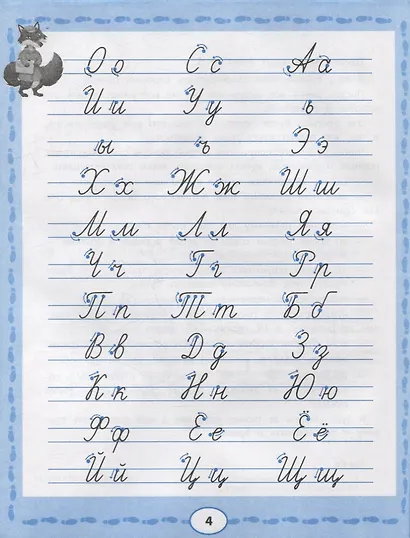 О о С с А а
И и У у ь
ы ъ Э э
Х х Ж ж Ш ш
М м Л л Я я
Ч ч Г г Р р
П п Т т Б б
В в Д д З з
К к Н н Ю ю
Ф ф Е е Ё ё
Й й Ц ц Щ щ
4